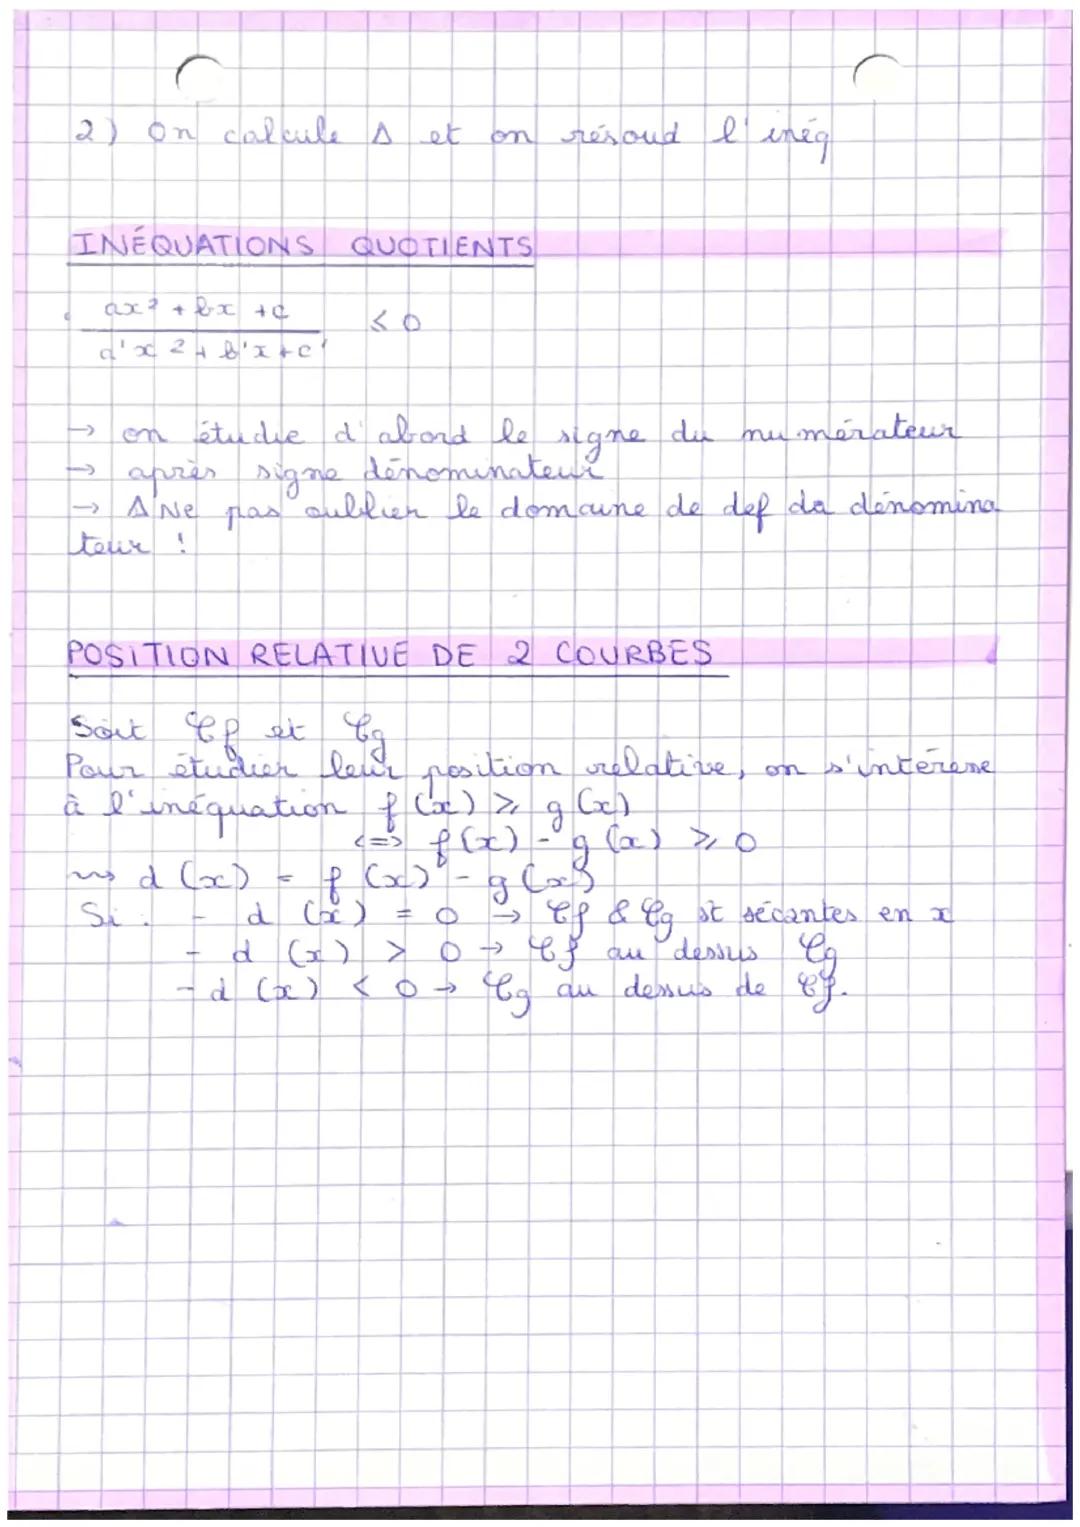 2) On calcule Δ et on résoud l'inéq
INÉQUATIONS QUOTIENTS
ax² + bx + c
< 0
a'x² + b'x + c'
→ on étudie d'abord le signe du numérateur
→ après signe dénominateur
→ ⚠ Ne pas oublier le domaine de def du dénomina
teur !
POSITION RELATIVE DE 2 COURBES
Soit Cf et Cg
Pour étudier leur position relative, on s'intéresse
à l'inéquation f(x) ⩾ g(x)
<=> f(x) - g(x) ⩾ 0
⇝ d(x) = f(x) - g(x)
Si : - d(x) = 0 → Cf & Cg st sécantes en x
- d(x) > 0 → Cf au dessus Cg
- d(x) < 0 → Cg au dessus de Cf.